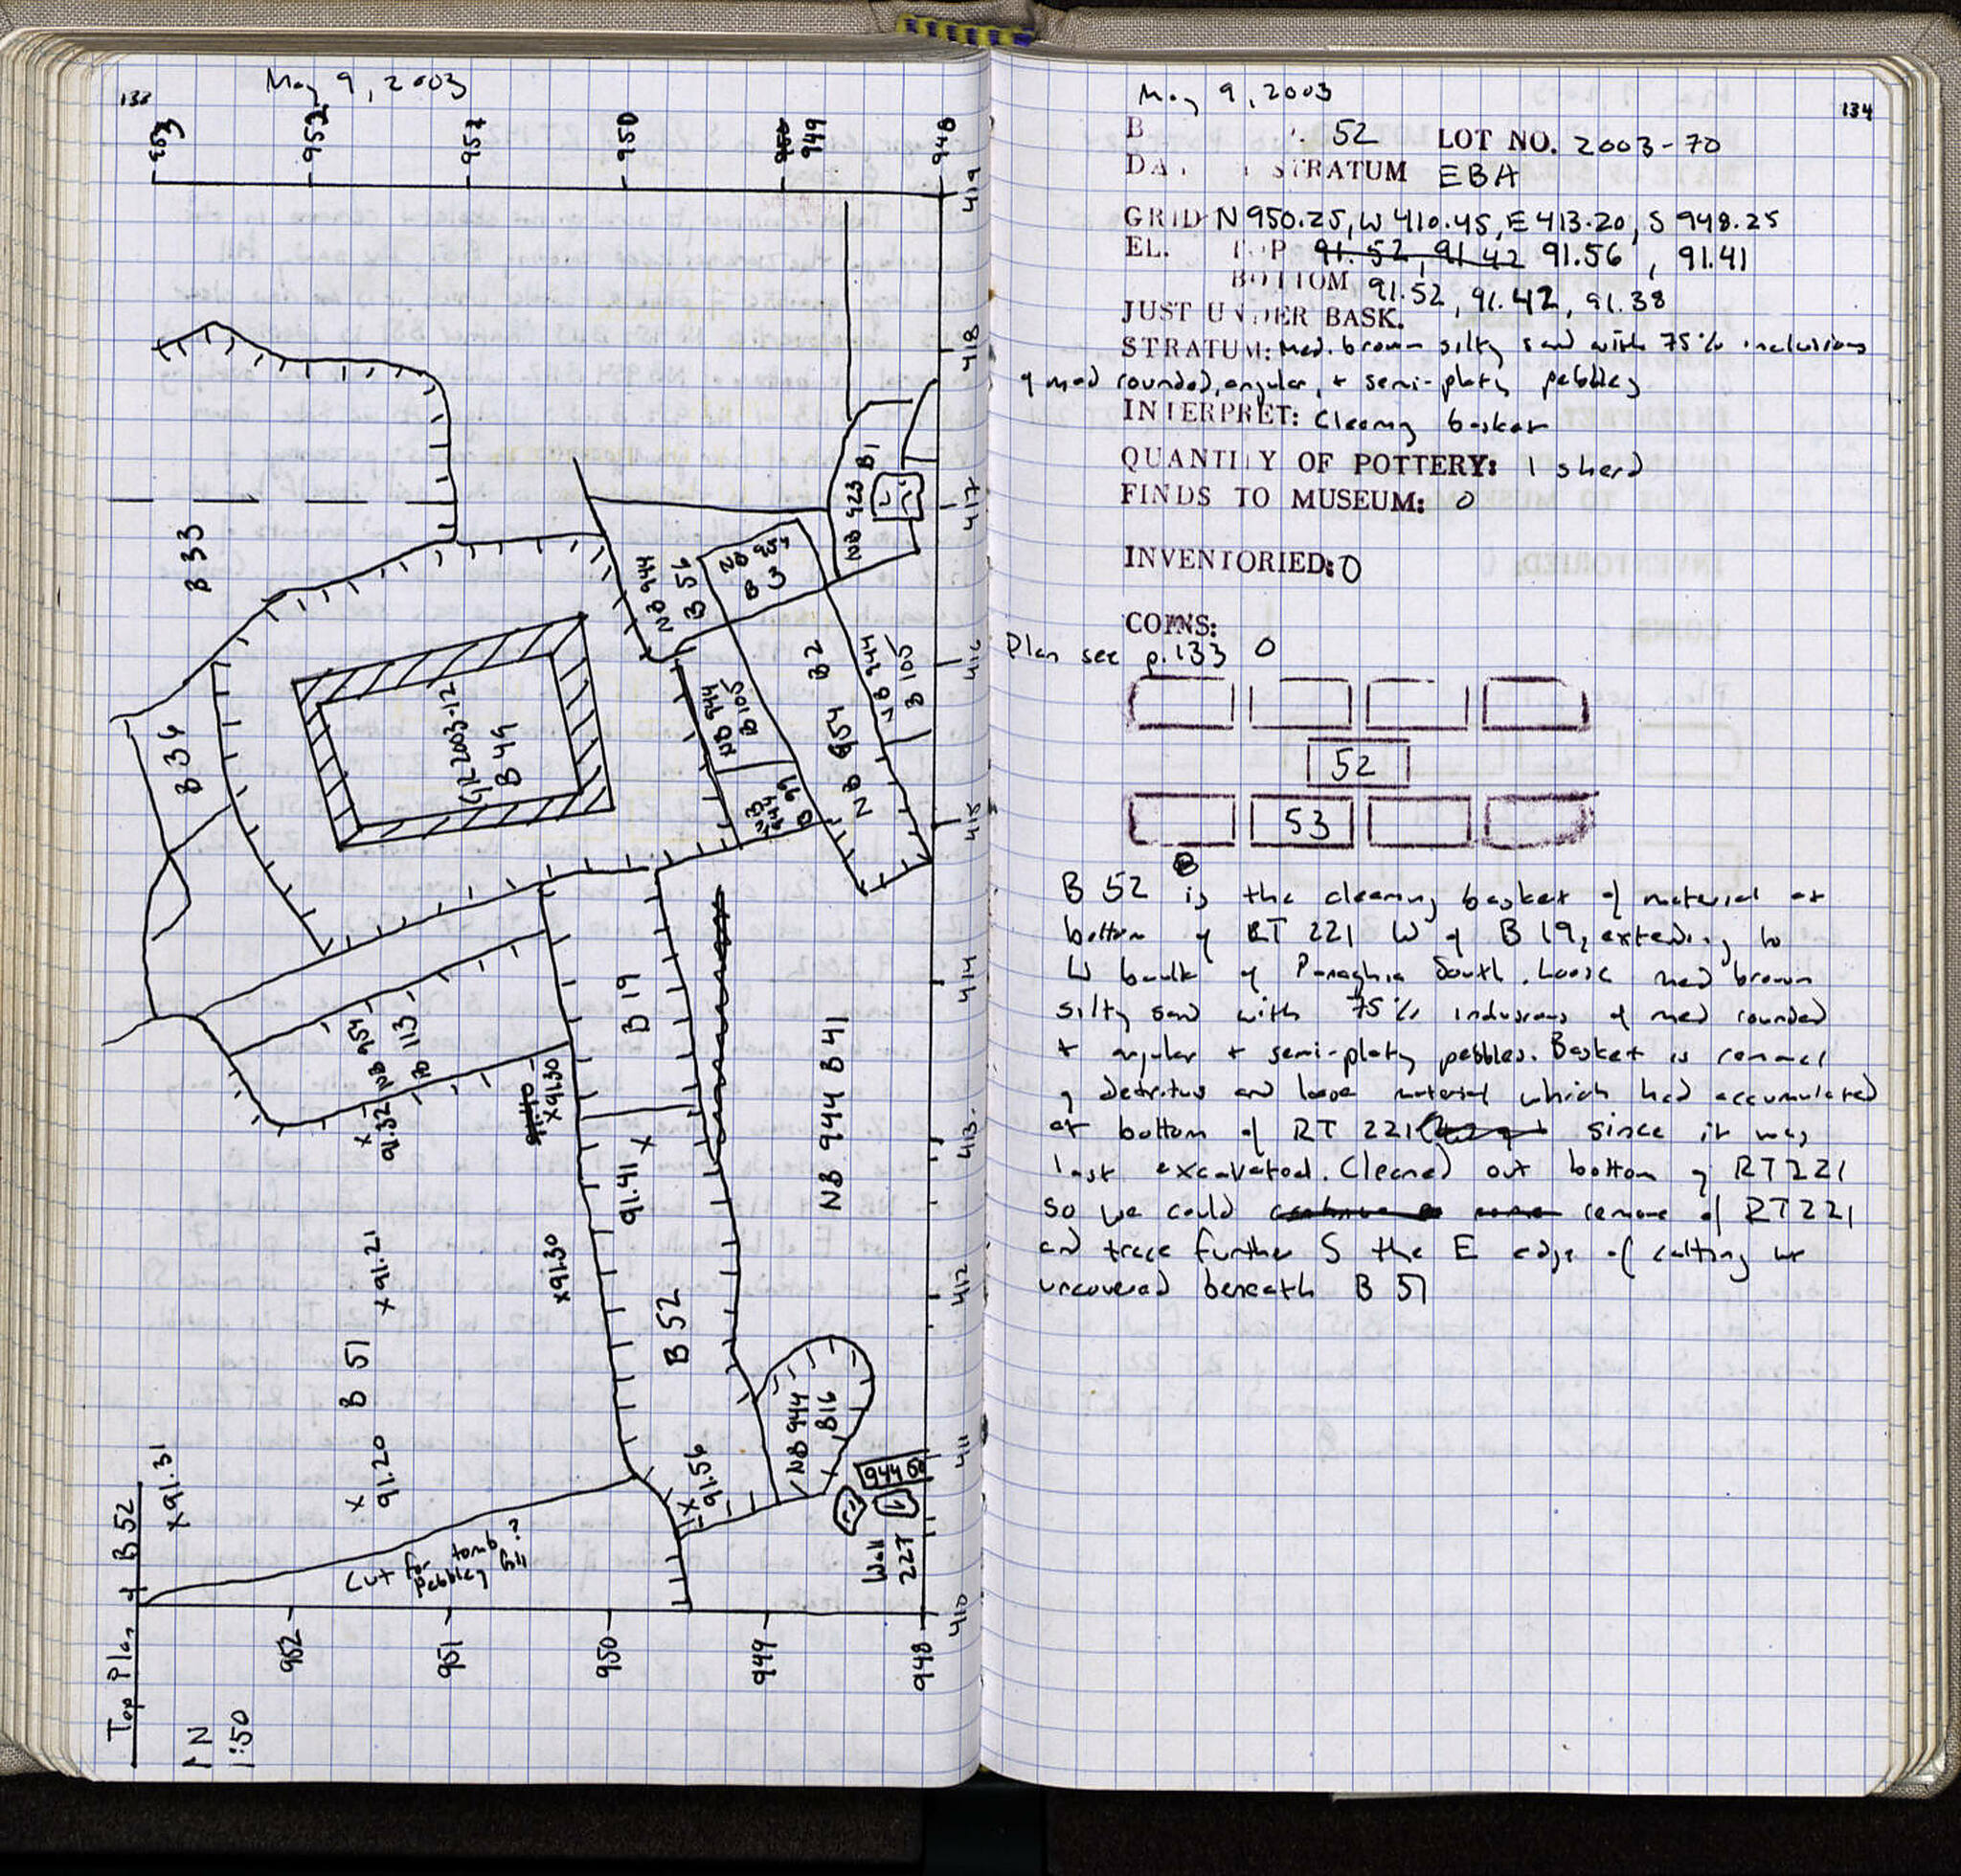 133
May 9, 2003
953
952
951
950
949
948
419
418
417
416
415
414
413
412
411
410
B 33
B 34
GR 2003-12
B 44
NB 944
B 56
NB 954
B 3
NB 423 B1
B 2
NB 954
NB 944
B 105
NB 944
B 105
NB 944
B 99
NB 954
B 113
B 19
x 91.30
x
91.32
91.41 x
NB 944 B 41
x 91.21
x 91.30
B 51
B 52
x 91.31
x
91.20
x
91.56
NB 944
B16
944
Wall
22T
Cut for tomb?
pebbley fill
952
951
950
949
948
Top Plan of B 52
N
1:50
134
May 9, 2003
B 52 LOT NO. 2003-70
DA STRATUM EBA
GRID N 950.25, W 410.45, E 413.20, S 948.25
EL. TOP 91.52, 91.42 91.56, 91.41
BOTTOM 91.52, 91.42, 91.38
JUST UNDER BASK.
STRATUM: Med. brown silty sand with 75% inclusions
of med rounded, angular, + semi-platy pebbles
INTERPRET: Cleaning basket
QUANTITY OF POTTERY: 1 sherd
FINDS TO MUSEUM: 0
INVENTORIED: 0
COINS:
Plan see p. 133 0
52
53
B 52 is the cleaning basket of material at
bottom of RT 221 W of B 19, extending to
W baulk of Panaghia South. Loose med brown
silty sand with 75% inclusions of med rounded
+ angular + semi-platy pebbles. Basket is removal
of detritus and loose material which had accumulated
at bottom of RT 221 since it was
last excavated. Cleaned out bottom of RT221
so we could remove of RT221
and trace further S the E edge of cutting we
uncovered beneath B 51